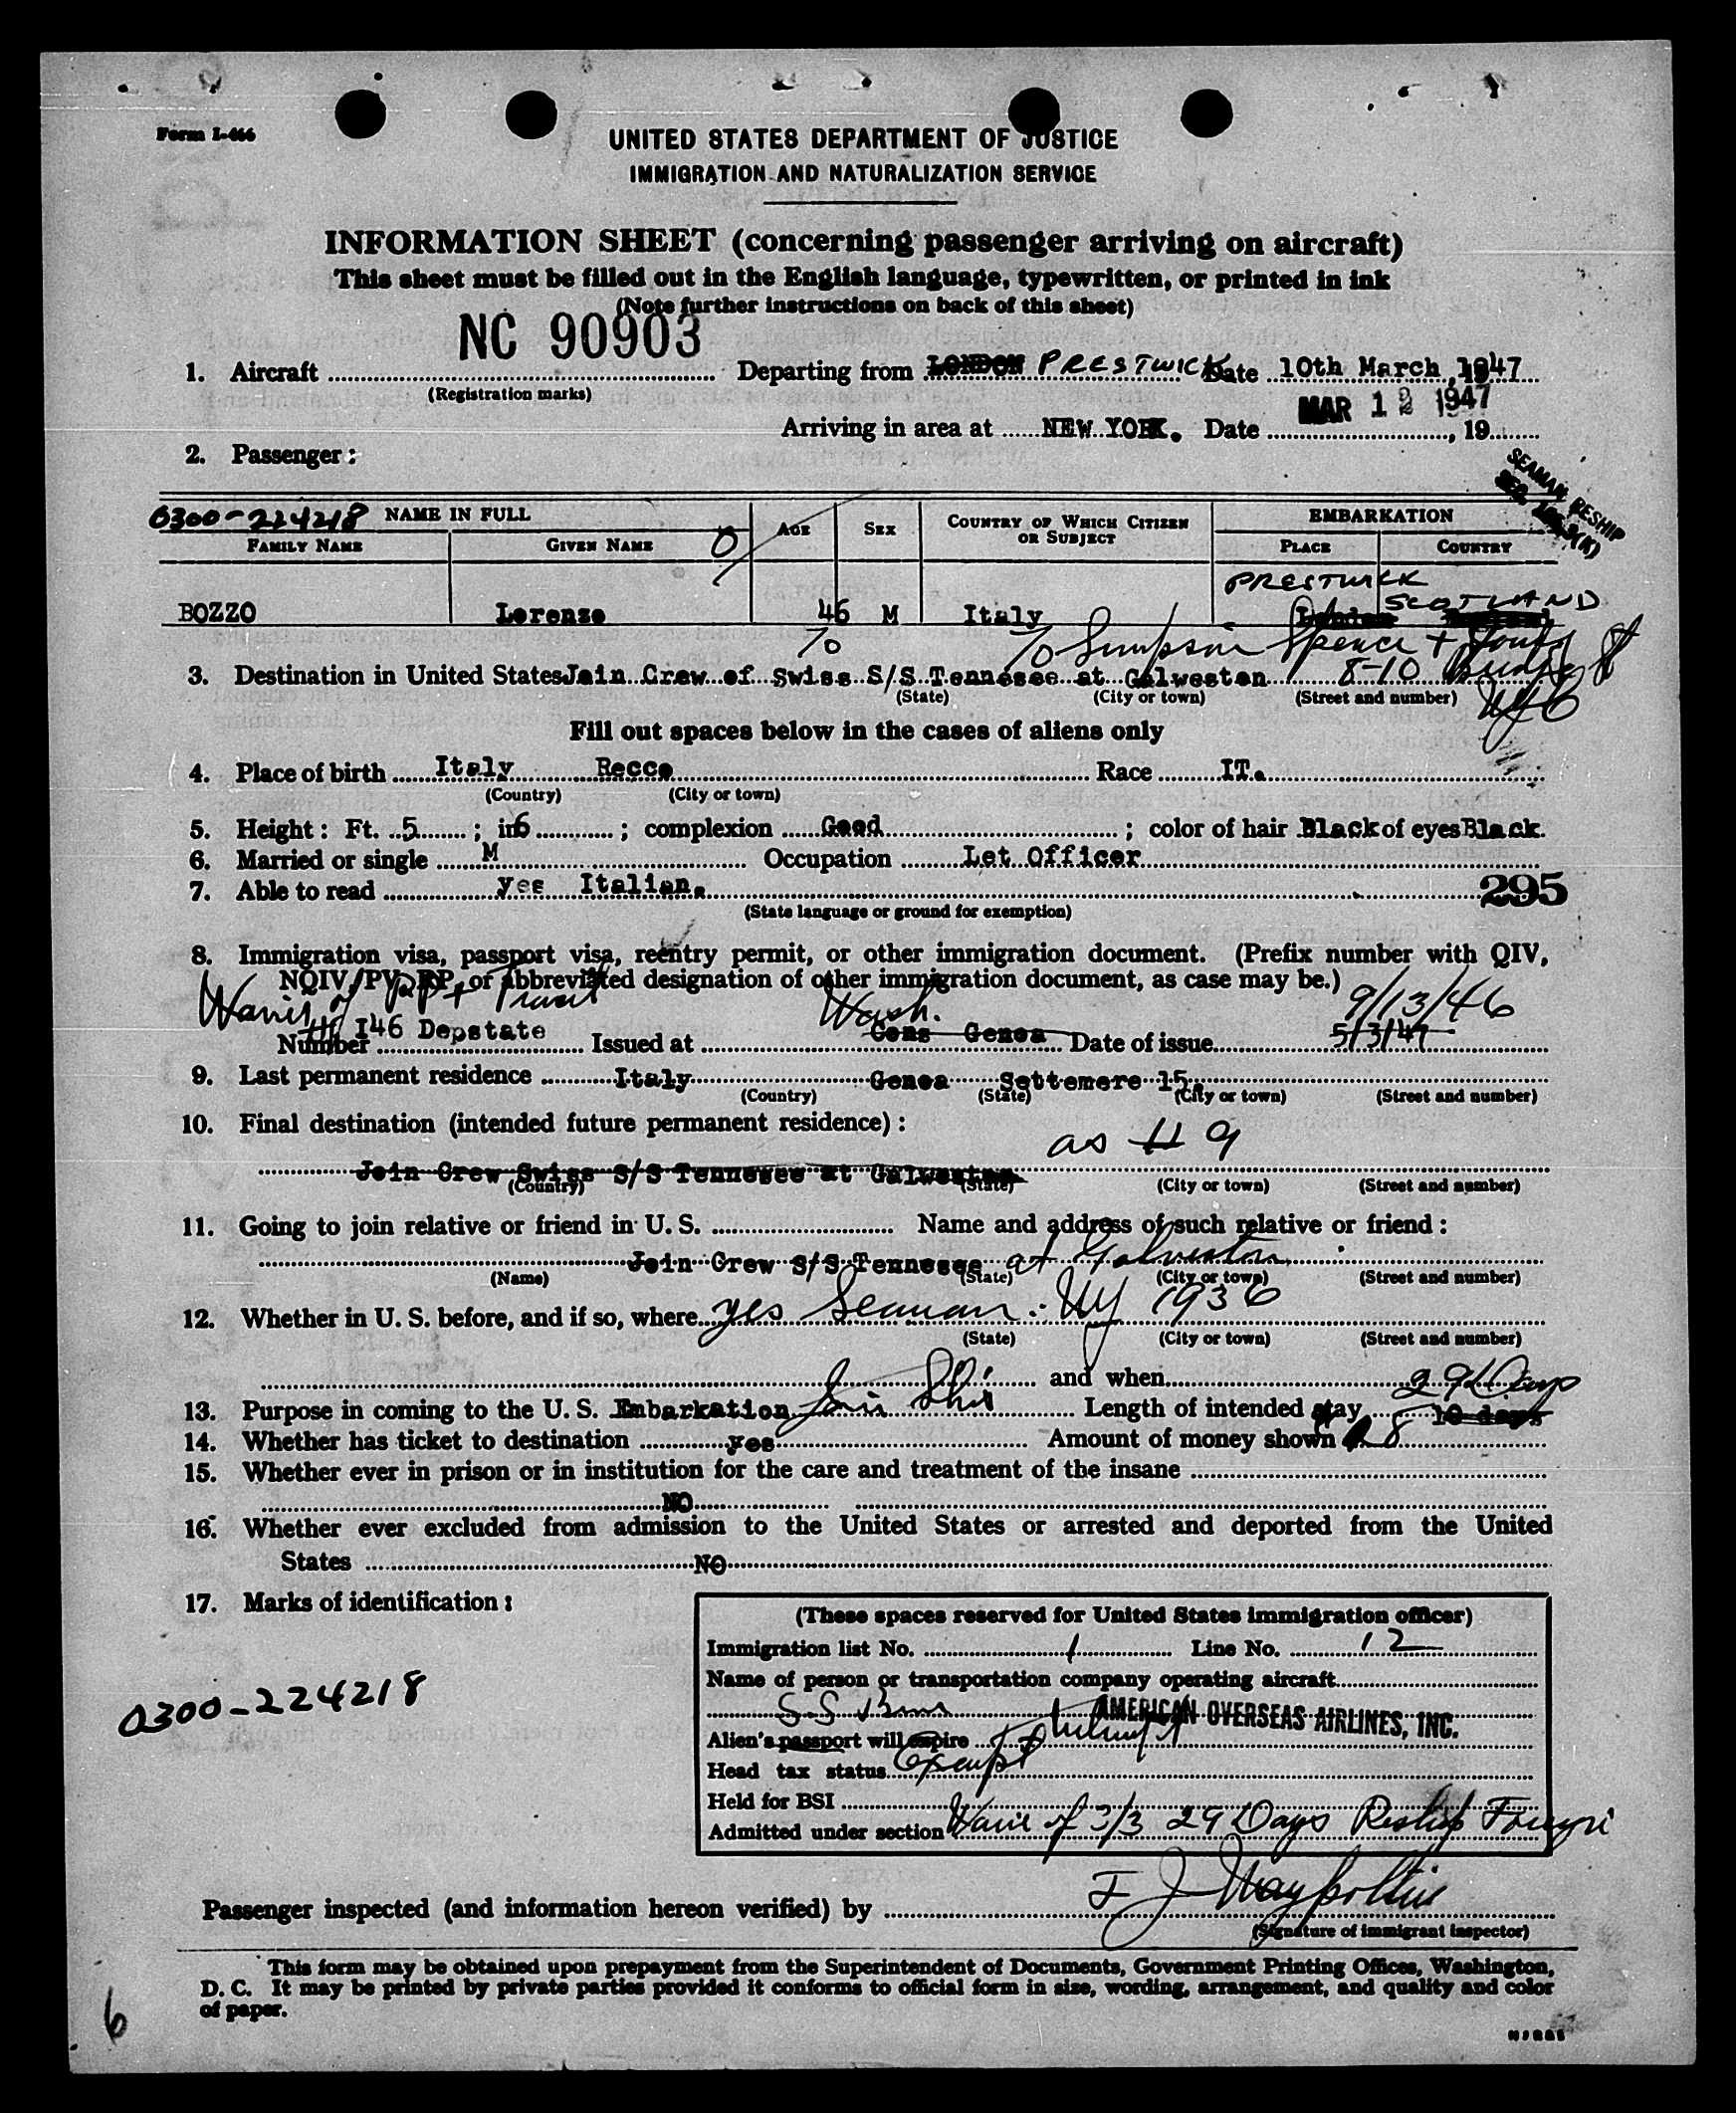 Form I-466
UNITED STATES DEPARTMENT OF JUSTICE
IMMIGRATION AND NATURALIZATION SERVICE
INFORMATION SHEET (concerning passenger arriving on aircraft)
This sheet must be filled out in the English language, typewritten, or printed in ink
(Note further instructions on back of this sheet)
NC 90903
1. Aircraft Departing from LONDON PRESTWICK Date 10th March, 1947
(Registration marks)
MAR 12 1947
Arriving in area at NEW YORK. Date , 19
2. Passenger:
SEAMAN RESHIP
0300-224218 NAME IN FULL AGE SEX COUNTRY OF WHICH CITIZEN OR SUBJECT EMBARKATION
FAMILY NAME GIVEN NAME PLACE COUNTRY
PRESTWICK SCOTLAND
BOZZO Lorenzo 46 M Italy London
% % Simpson Spence + Young
3. Destination in United States Join Crew of Swiss S/S Tennesee at Galweston 8-10 Bridge St
(State) (City or town) (Street and number) NYC
Fill out spaces below in the cases of aliens only
4. Place of birth Italy Recco Race IT.
(Country) (City or town)
5. Height: Ft. 5; in 6; complexion Good; color of hair Black of eyes Black.
6. Married or single M Occupation Let Officer
7. Able to read yes Italian. 295
(State language or ground for exemption)
8. Immigration visa, passport visa, reentry permit, or other immigration document. (Prefix number with QIV,
NQIV, PV, RP, or abbreviated designation of other immigration document, as case may be.)
Waiver of PP + Transit Wash. 9/13/46
Number I46 Depstate Issued at Cons Genoa Date of issue 5/3/47
9. Last permanent residence Italy Genoa Settemere 15.
(Country) (State) (City or town) (Street and number)
10. Final destination (intended future permanent residence):
as # 9
Join Crew Swiss S/S Tennesee at Galweston
(Country) (State) (City or town) (Street and number)
11. Going to join relative or friend in U. S. Name and address of such relative or friend:
Join Crew S/S Tennesee at Galveston
(Name) (State) (City or town) (Street and number)
12. Whether in U. S. before, and if so, where yes Seaman: NY 1936
(State) (City or town) (Street and number)
and when 29 Days
13. Purpose in coming to the U. S. Embarkation Join Ship Length of intended stay 10 days
14. Whether has ticket to destination yes Amount of money shown 8
15. Whether ever in prison or in institution for the care and treatment of the insane
NO
16. Whether ever excluded from admission to the United States or arrested and deported from the United
States NO
17. Marks of identification:
(These spaces reserved for United States immigration officer)
Immigration list No. 1 Line No. 12
Name of person or transportation company operating aircraft
AMERICAN OVERSEAS AIRLINES, INC.
0300-224218
Alien's passport will expire
Head tax status Exempt
Held for BSI
Admitted under section Waiv of 3/3 29 Days Reship Foreign
Passenger inspected (and information hereon verified) by F J
(Signature of immigrant inspector)
This form may be obtained upon prepayment from the Superintendent of Documents, Government Printing Offices, Washington,
D. C. It may be printed by private parties provided it conforms to official form in size, wording, arrangement, and quality and color
of paper.
6